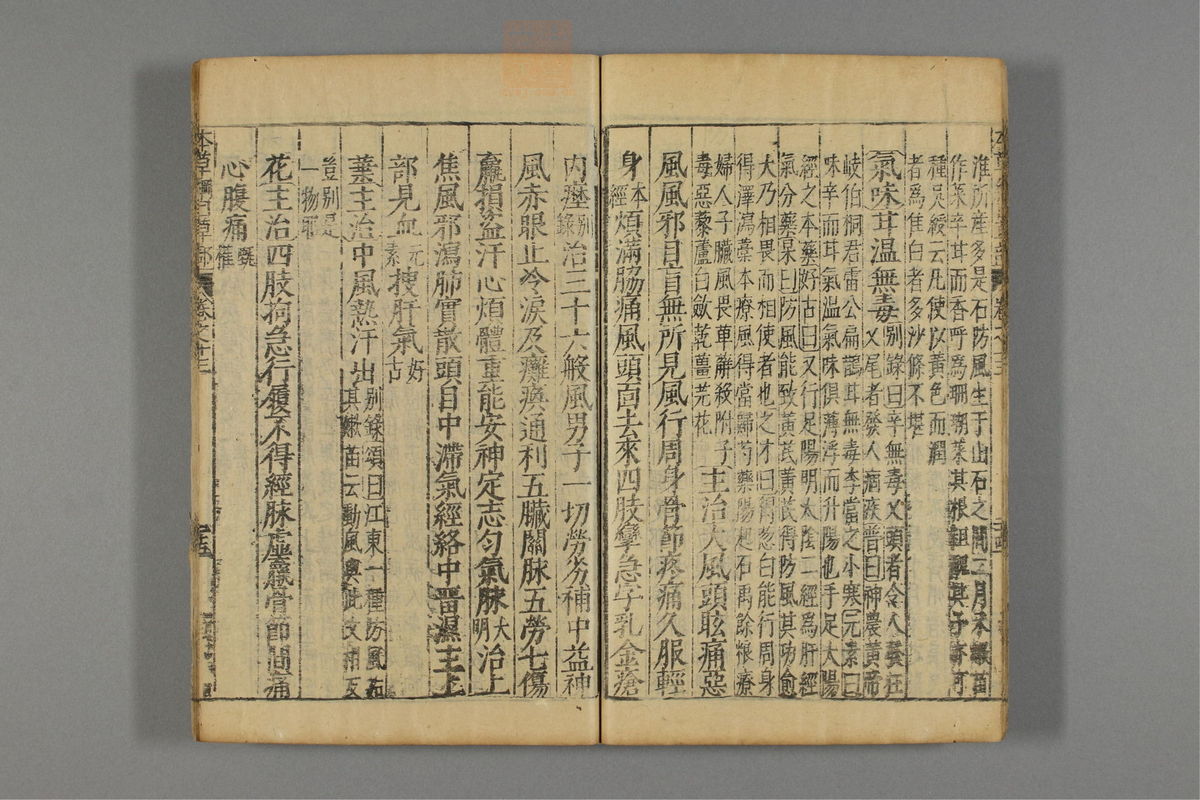 淮所產多是石防風生于山石之間二月采嫩苗
作菜辛甘而香呼爲珊瑚菜其根粗醜其子亦可
種吳綬云凡使以黃色而潤
者爲佳白者多沙條不堪
氣味甘溫無毒別錄曰辛無毒乂頭者令人發狂
乂尾者發人痼疾普曰神農黃帝
岐伯桐君雷公扁鵲甘無毒李當之小寒元素曰
味辛而甘氣溫氣味俱薄浮而升陽也手足太陽
經之本藥好古曰又行足陽明太陰二經爲肝經
氣分藥杲曰防風能致黃芪黃芪得防風其功愈
大乃相畏而相使者也之才曰得葱白能行周身
得澤瀉藁本療風得當歸芍藥陽起石禹餘糧療
婦人子臟風畏萆薢殺附子
毒惡藜蘆白斂乾薑芫花
主治大風頭眩痛惡
風風邪目盲無所見風行周身骨節疼痛久服輕
身本經煩滿脇痛風頭面去來四肢攣急字乳金瘡
內痙別錄治三十六般風男子一切勞劣補中益神
風赤眼止冷淚及癱瘓通利五臟關脉五勞七傷
羸損盜汗心煩體重能安神定志勻氣脉大明治上
焦風邪瀉肺實散頭目中滯氣經絡中畱濕主上
部見血元素搜肝氣好古
葉主治中風熱汗出別錄頌曰江東一種防風茹
其嫩苗云動風與此文相反
豈別是
一物耶
花主治四肢拘急行履不得經脉虛羸骨節間痛
心腹痛甄權